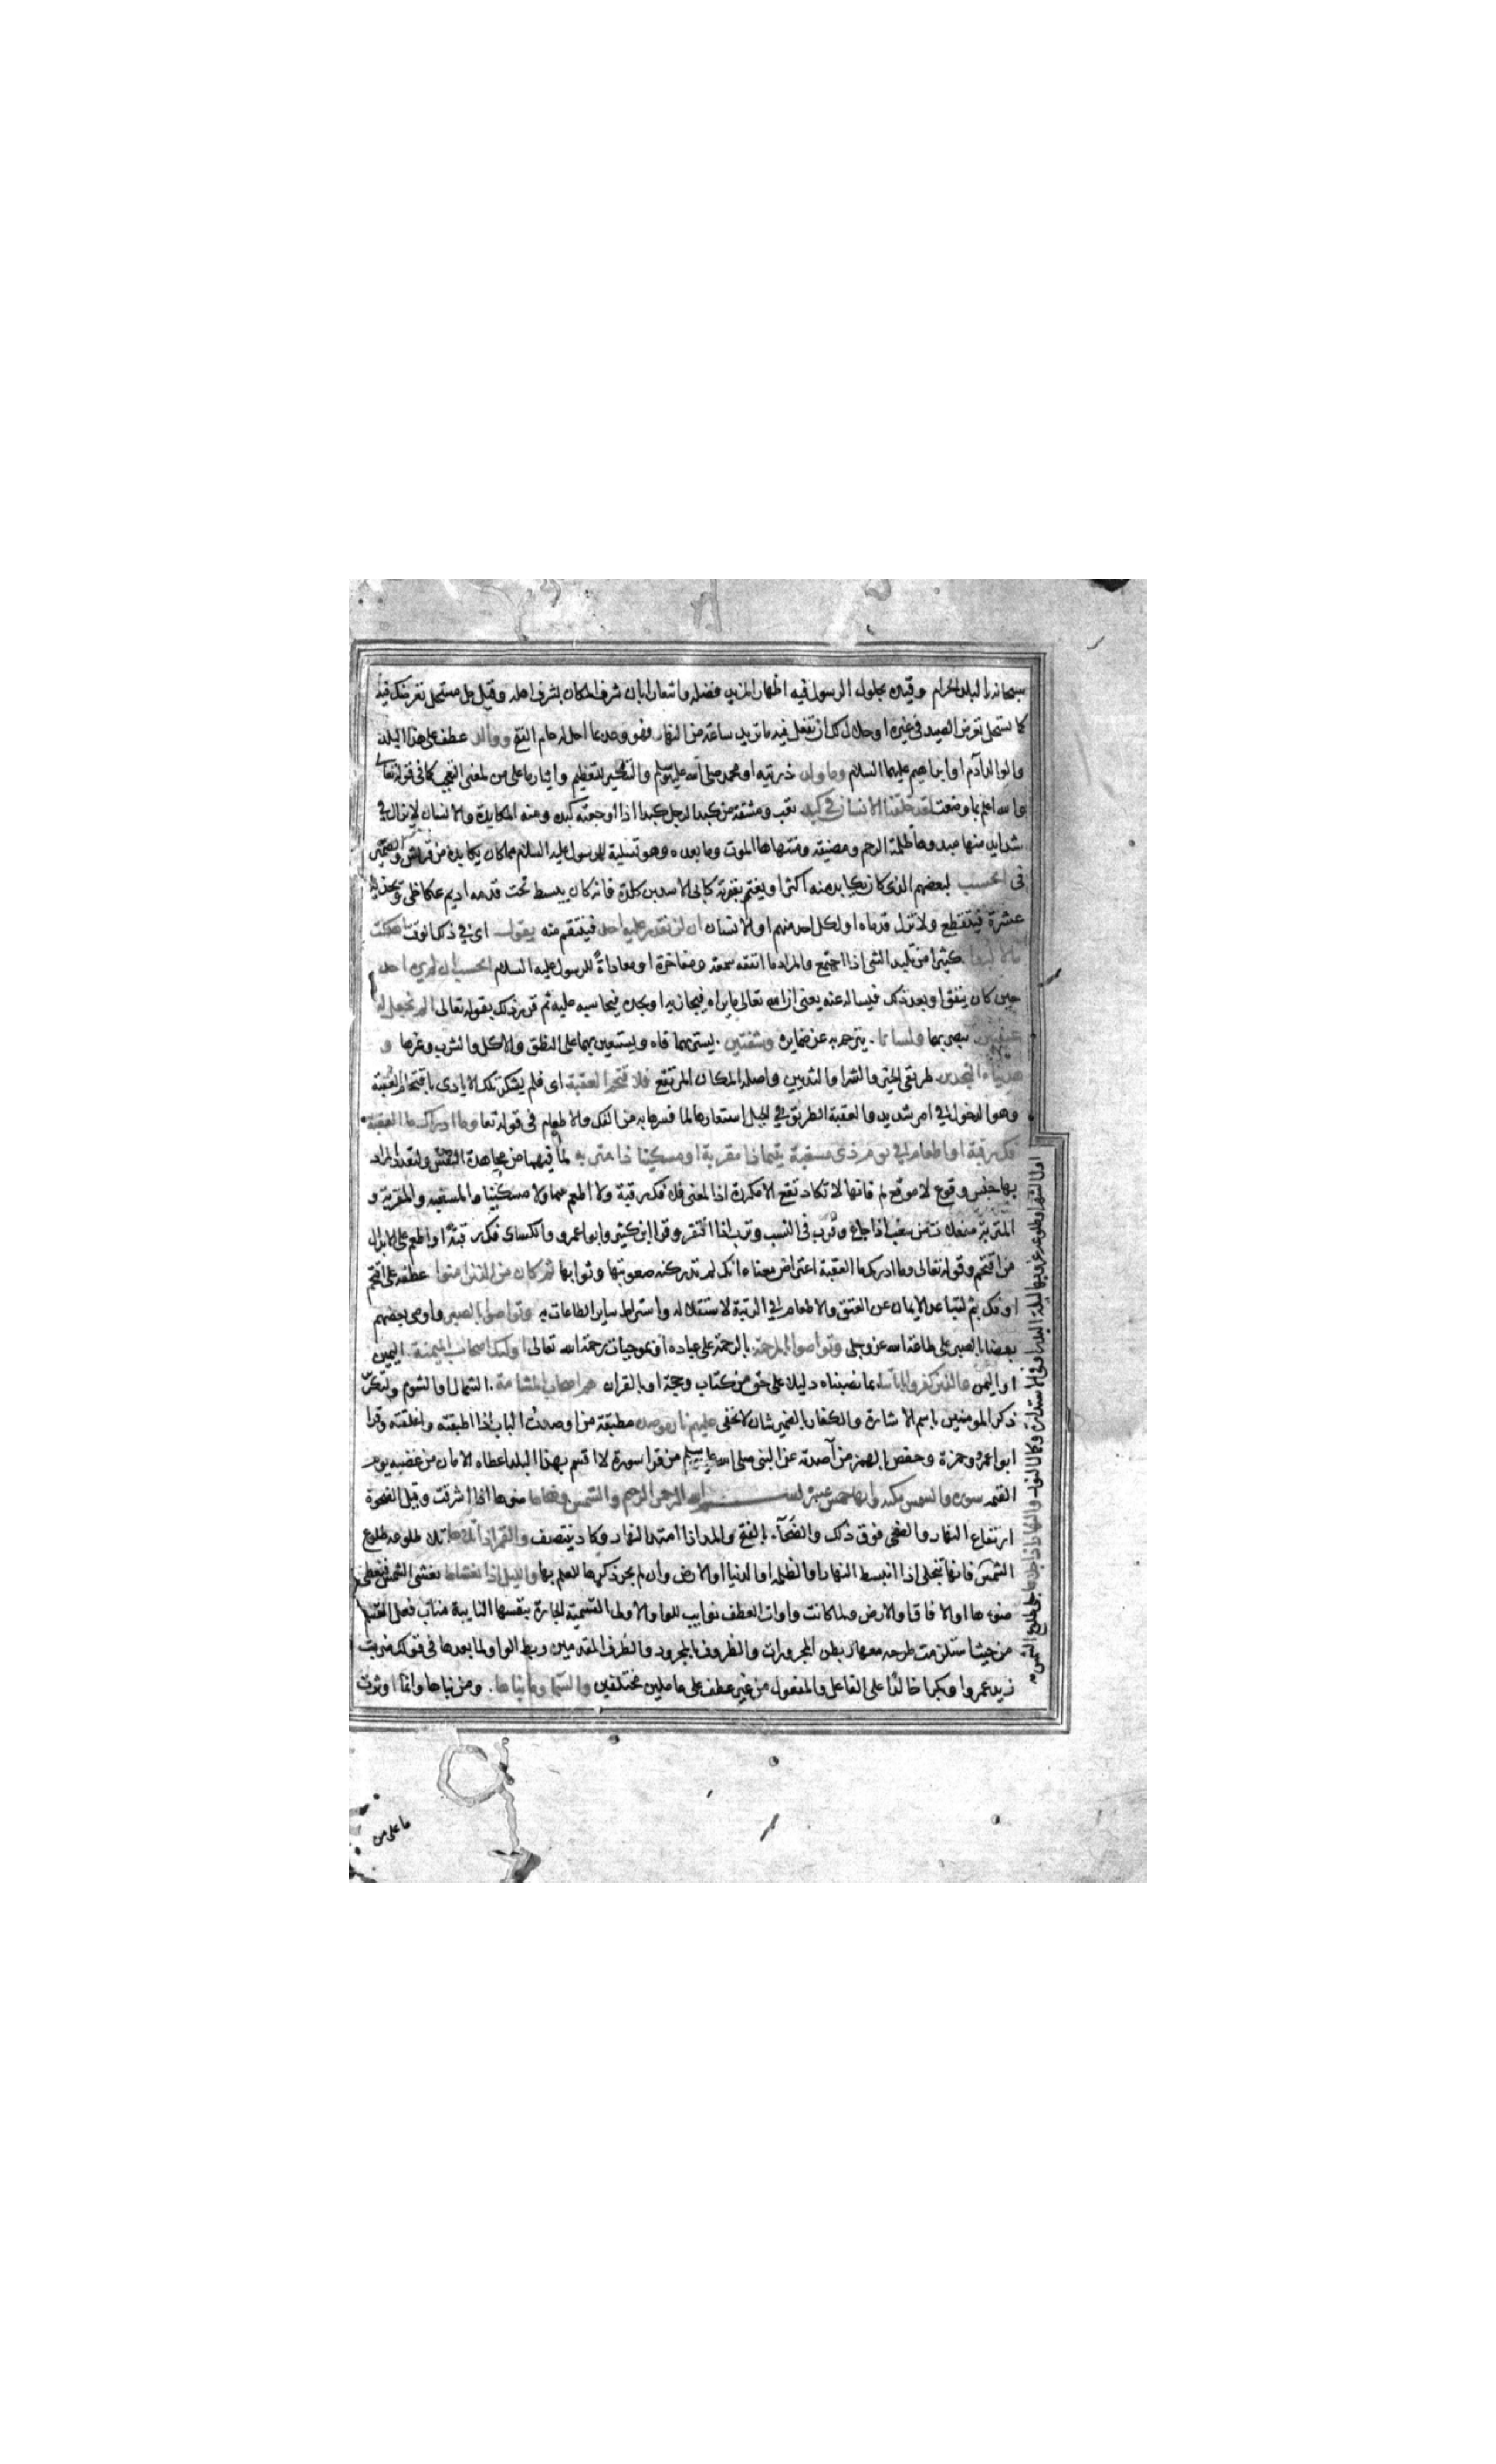 سبحانه بالبلد الحرام وقيده بحلول الرسول فيه اظهارا لمزيد فضله واشعارا بان شرف المكان بشرف اهله وقيل حل مستحل تعرضك فيه
كما يستحل تعرض الصيد فى غيره او حلال لك ان تفعل فيه ما تريد ساعة من النهار فهو وعد بما احل له عام الفتح ووالد عطف على هذا البلد
والوالد آدم او ابراهيم عليهما السلام وما ولد ذريته او محمد صلى الله عليه وسلم والتنكير للتعظيم وايثار ما على من لمعنى التعجب كما فى قوله تعالى
والله اعلم بما وضعت لقد خلقنا الانسان في كبد تعب ومشقة من كبد الرجل كبدا اذا اوجعته كبده ومنه المكابدة والانسان لا يزال في
شدايد منها مبدوها ظلمة الرحم ومضيقه ومنتهاها الموت وما بعده وهو تسلية للرسول عليه السلام مما كان يكابده من قريش والضمير
فى ايحسب لبعضهم الذى كان يكابد منه اكثر او يغتر بقوته كابى الاسد بن كلدة فانه كان يبسط تحت قدمه اديم عكاظى ويجذبه
عشرة فيتقطع ولا تزل قدماه او لكل احد منهم او للانسان ان لن يقدر عليه احد فينتقم منه يقول اى في ذلك الوقت اهلكت
مالا لبدا كثيرا من تلبد الشى اذا اجتمع والمراد ما انفقه سمعة ومفاخرة او معاداة للرسول عليه السلام ايحسب ان لم يره احد
حين كان ينفق او بعد ذلك فيساله عنه يعنى ان الله تعالى يراه فيجازيه او يجده فيحاسبه عليه ثم قرر ذلك بقوله تعالى الم نجعل له
عينين يبصر بهما ولسانا يترجم به عن ضمايره وشفتين يستر بهما فاه ويستعين بهما على النطق والاكل والشرب وغيرها و
هديناه النجدين طريقى الخير والشر او الثديين واصله المكان المرتفع فلا اقتحم العقبة اى فلم يشكر تلك الايادى باقتحام العقبة
وهو الدخول في امر شديد والعقبة الطريق في الجبل استعارها لما فسرها به من الفك والاطعام فى قوله تعا وما ادراك ما العقبة
فك رقبة او اطعام في يوم ذى مسغبة يتيما ذا مقربة او مسكينا ذا متربه لما فيهما من مجاهدة النفس ولتعدد المراد
بها حسن وقوع لا موقع لم فانها لا تكاد تقع الا مكررة اذ المعنى فلا فك رقبة ولا اطعم يتيما ولا مسكينا والمسغبه والمقربة و
المتربة مفعلات من سغب اذا جاع وقرب فى النسب وترب اذا افتقر وقرا ابن كثير وابو عمرو والكساى فك رقبة او اطعم على الابدال
من اقتحم وقوله تعالى وما ادريك ما العقبة اعتراض معناه انك لم تدر كنه صعوبتها وثوابها ثم كان من الذين امنوا عطفه على اقتحم
او فك بثم لتباعد الايمان عن العتق والاطعام في الرتبة لاستقلاله واشتراط ساير الطاعات به وتواصوا بالصبر واوصى بعضهم
بعضا بالصبر على طاعة الله عز وجل وتواصوا بالمرحمة بالرحمة على عباده او بموجبات رحمة الله تعالى اولئك اصحاب الميمنة اليمين
او اليمن والذين كفروا باياتنا بما نصبناه دليلا على حق من كتاب وحجة او بالقران هم اصحاب المشامة الشمال او الشوم ولتكرير
ذكر المومنين باسم الاشارة والكفار بالضمير شان لا يخفى عليهم نار موصدة مطبقة من اوصدت الباب اذا اطبقته واغلقته وقرا
ابو عمرو وحمزة وحفص بالهمز من آصدته عن النبى صلى الله عليه وسلم من قرا سورة لا اقسم بهذا البلد اعطاه الامان من غضبه يوم
القيمه سورة والشمس مكية وايها خمس عشرة بسم الله الرحمن الرحيم والشمس وضحاها ضوءها اذا اشرقت وقيل الضحوة
ارتفاع النهار والضحى فوق ذلك والضحآء بالفتح والمد اذا امتد النهار وكاد ينتصف والقمر اذا تلاها تلا طلوعه طلوع
الشمس فانها تتجلى اذا انبسط النهار او الظلمة او الدنيا او الارض وان لم يجر ذكرها للعلم بها والليل اذا يغشاها يغشى الشمس فيغطى
ضوءها او الافاق او الارض ولما كانت واوات العطف نوايب للواو الاولى القسمية الجارة بنفسها النايبة مناب فعل القسم
من حيث استلزمت طرحه معها ربطن المجرورات والظروف بالمجرور والظرف المقدمين ربط الواو لما بعدها فى قولك ضرب
زيد عمروا وبكر خالدا على الفاعل والمفعول من غير عطف على عاملين مختلفين والسما وما بناها ومن بناها وانما اوثرت
اول الشهر او طلوعه غروبها ليلة البدر او في الاستدارة وكمال النور والنهار اذا جلاها جلى الشمس
ما على من